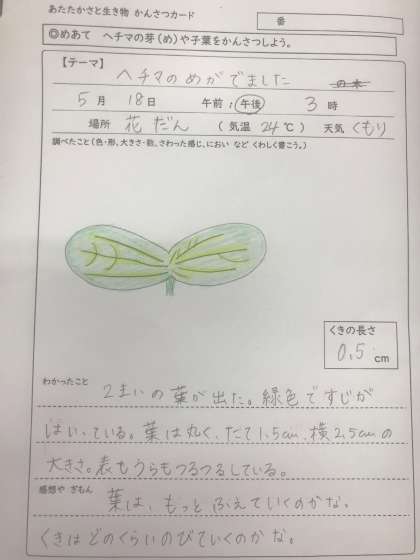 あたたかさと生き物 かんさつカード
番
◎めあて ヘチマの芽(め)や子葉をかんさつしよう。
【テーマ】
ヘチマのめがでました
5月 18日 午前・午後 3時
場所 花だん (気温 24℃) 天気 くもり
調べたこと(色・形、大きさ・数、さわった感じ、におい など くわしく書こう。)
くきの長さ
0.5cm
わかったこと
2まいの葉が出た。緑色ですじが
はいっている。葉は丸く、たて1.5cm、横2.5cmの
大きさ。表もうらもつるつるしている。
感想や ぎもん
葉は、もっとふえていくのかな。
くきはどのくらいのびていくのかな。